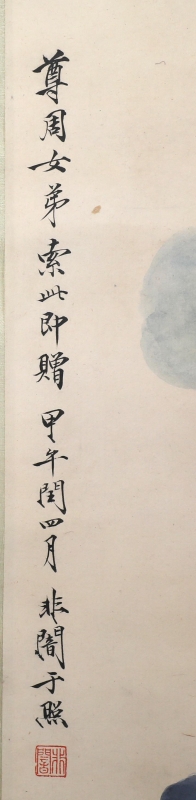 尊周女弟索此即贈 甲午閏四月 非闇于照
非闇